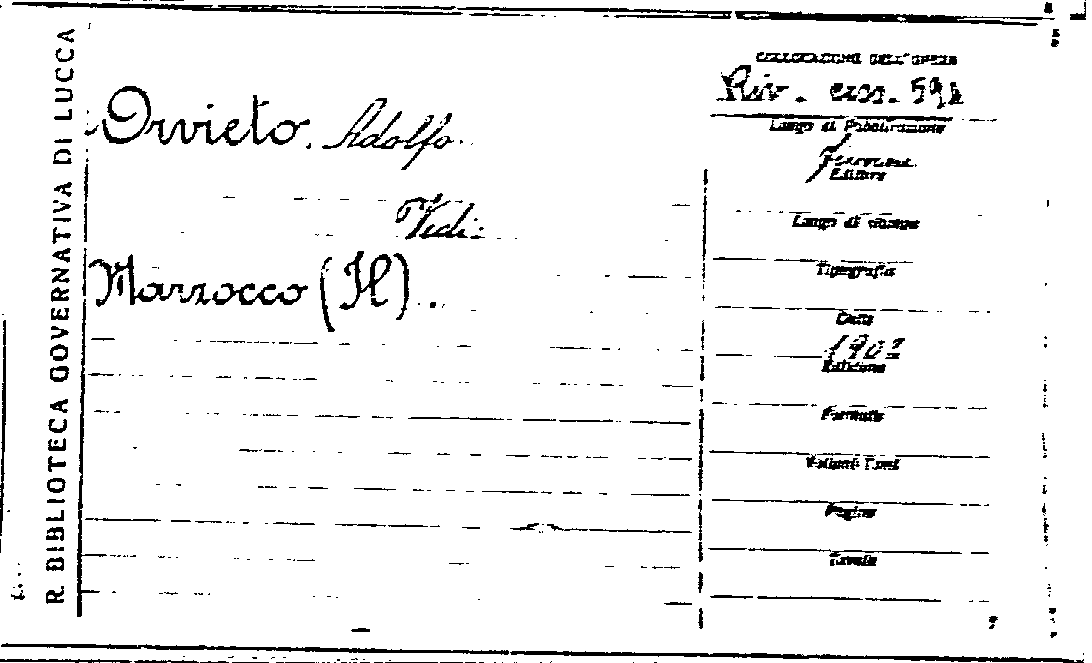 R. BIBLIOTECA GOVERNATIVA DI LUCCA
Orvieto. Adolfo.
Vedi:
Marzocco (Il).
COLLOCAZIONE DELL'OPERA
Riv.
Luogo di Pubblicazione
Firenze
Editore
Luogo di stampa
Tipografia
Data
1902
Edizione
Formato
Volumi: Tomi
Pagine
Tavole